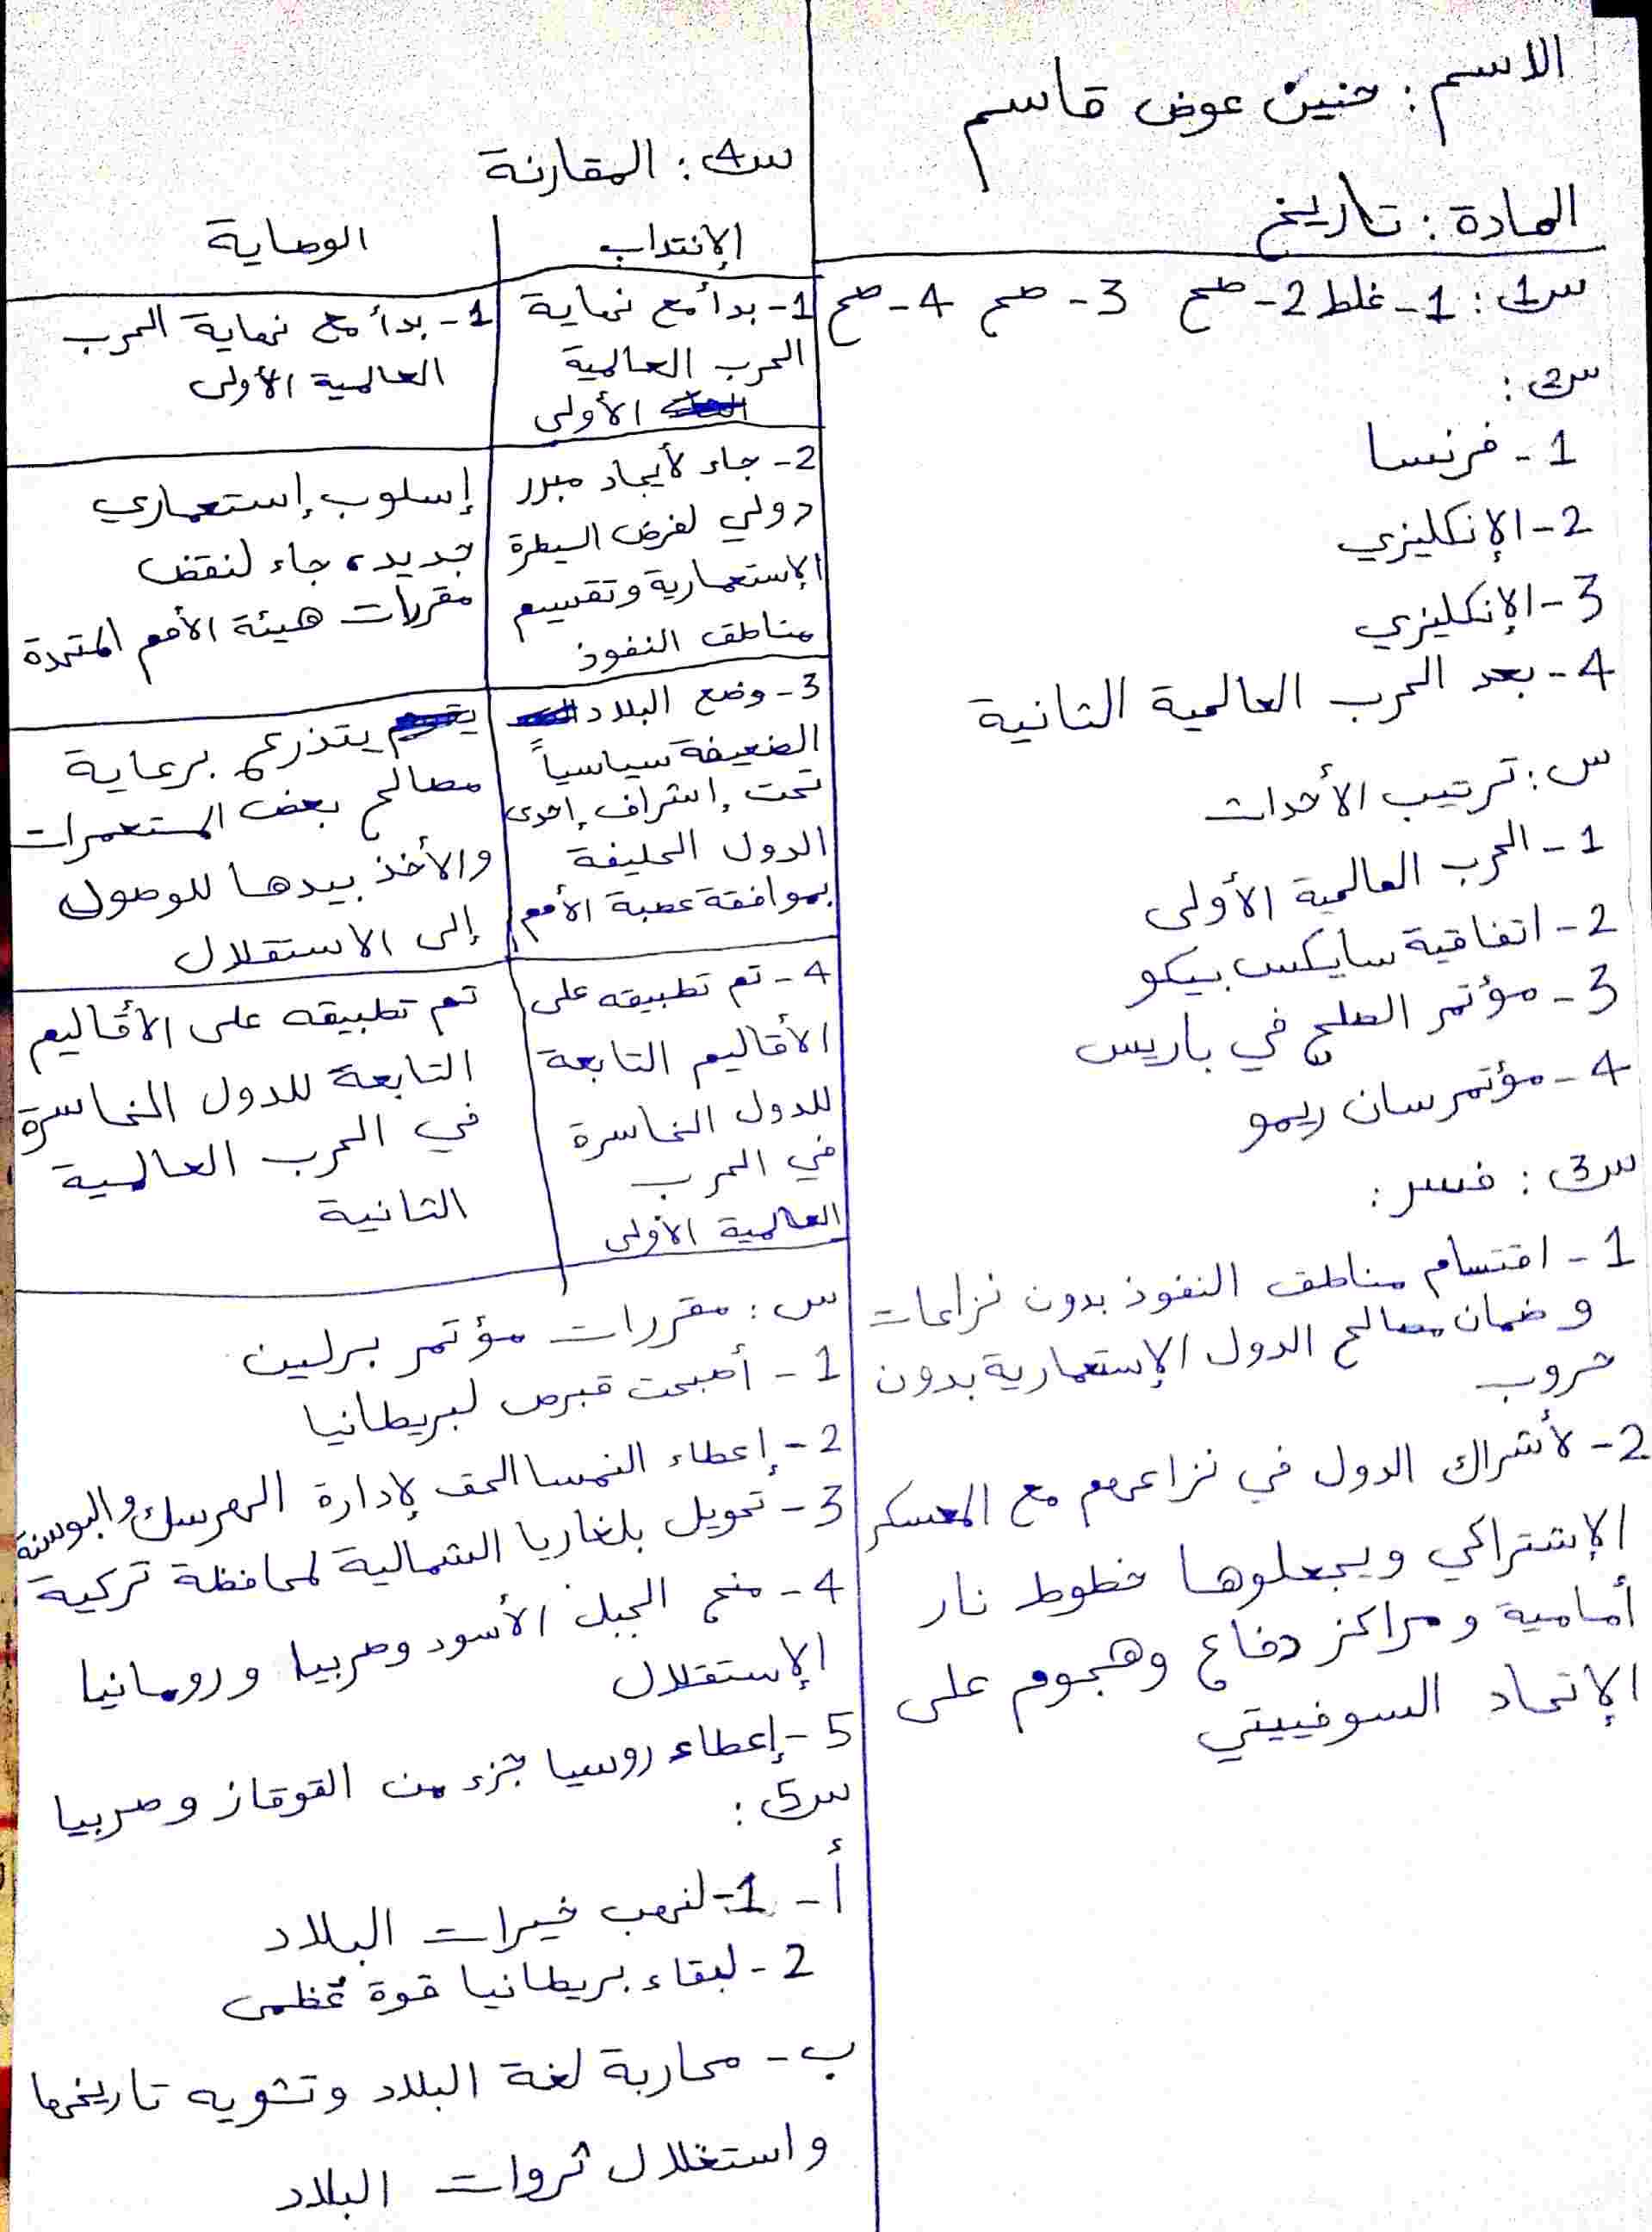 الاسم: حنين عوض قاسم
المادة: تاريخ
س1: 1- غلط 2- صح 3- صح 4- صح
س2:
1- فرنسا
2- الإنكليزي
3- الإنكليزي
4- بعد الحرب العالمية الثانية
س: ترتيب الأحداث
1- الحرب العالمية الأولى
2- اتفاقية سايكس بيكو
3- مؤتمر الصلح في باريس
4- مؤتمر سان ريمو
س3: فسر:
1- اقتسام مناطق النفوذ بدون نزاعات
و ضمان مصالح الدول الإستعمارية بدون
حروب
2- لأشراك الدول في نزاعهم مع المعسكر
الإشتراكي ويجعلوها خطوط نار
أمامية ومراكز دفاع وهجوم على
الإتحاد السوفييتي
س4: المقارنة
الإنتداب
الوصاية
1- بدأ مع نهاية
الحرب العالمية
الأولى
1- بدأ مع نهاية الحرب
العالمية الأولى
2- جاء لأيجاد مبرر
دولي لفرض السيطرة
الإستعمارية وتقسيم
مناطق النفوذ
إسلوب إستعماري
جديد، جاء لنقض
مقررات هيئة الأمم المتحدة
3- وضع البلاد
الضعيفة سياسياً
تحت إشراف إحدى
الدول الحليفة
بموافقة عصبة الأمم
يتذرع برعاية
مصالح بعض المستعمرات
والأخذ بيدها للوصول
إلى الاستقلال
4- تم تطبيقه على
الأقاليم التابعة
للدول الخاسرة
في الحرب
العالمية الأولى
تم تطبيقه على الأقاليم
التابعة للدول الخاسرة
في الحرب العالمية
الثانية
س: مقررات مؤتمر برلين
1- أصبحت قبرص لبريطانيا
2- إعطاء النمسا الحق لإدارة الهرسك والبوسنة
3- تحويل بلغاريا الشمالية لمحافظة تركية
4- منح الجبل الأسود وصربيا ورومانيا
الإستقلال
5- إعطاء روسيا جزء من القوقاز وصربيا
س5:
أ- 1- لنهب خيرات البلاد
2- لبقاء بريطانيا قوة عظمى
ب- محاربة لغة البلاد وتشويه تاريخها
واستغلال ثروات البلاد